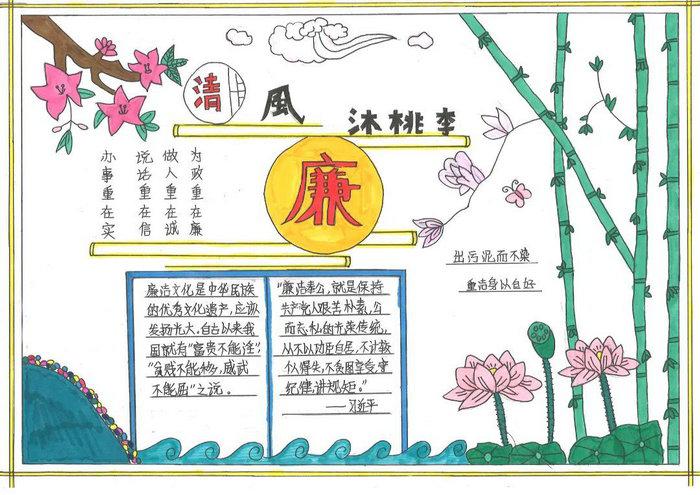 清風沐桃李
廉
为政重在廉
做人重在诚
说话重在信
办事重在实
出污泥而不染
重洁身以自好
廉洁文化是中华民族
的优秀文化遗产，应该
发扬光大。自古以来我
国就有"富贵不能淫"，
"贫贱不能移，威武
不能屈"之说。
"廉洁奉公，就是保持
共产党人艰苦朴素，公
而忘私的光荣传统，
从不以功臣自居，不计较
个人得失，不贪图享受，守
纪律，讲规矩。"
——习近平